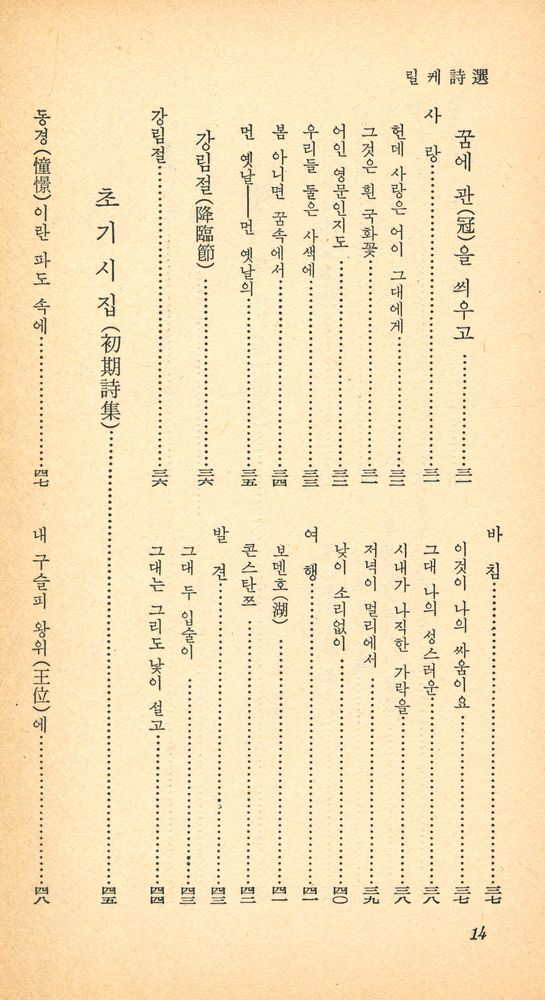 릴케詩選
꿈에 관(冠)을 씌우고 …… 三一
사 랑 …… 三一
헌데 사랑은 어이 그대에게 …… 三二
그것은 흰 국화꽃 …… 三一
어인 영문인지도 …… 三二
우리들 둘은 사색에 …… 三三
봄 아니면 꿈속에서 …… 三四
먼 옛날――먼 옛날의 …… 三五
강림절(降臨節) …… 三六
강림절 …… 三六
바 침 …… 三七
이것이 나의 싸움이요 …… 三七
그대 나의 성스러운 …… 三八
시내가 나직한 가락을 …… 三八
저녁이 멀리에서 …… 三九
낮이 소리없이 …… 四〇
여 행 …… 四一
보덴호(湖) …… 四一
콘스탄쯔 …… 四二
발 견 …… 四三
그대 두 입술이 …… 四三
그대는 그리도 낯이 설고 …… 四四
초기시집(初期詩集) …… 四五
동경(憧憬)이란 파도 속에 …… 四七
내 구슬피 왕위(王位)에 …… 四八
14